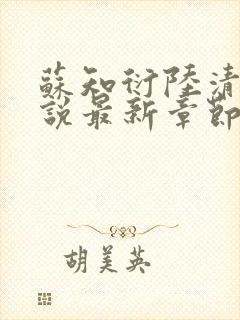 蘇知衍陸清
說最新章節
胡美英